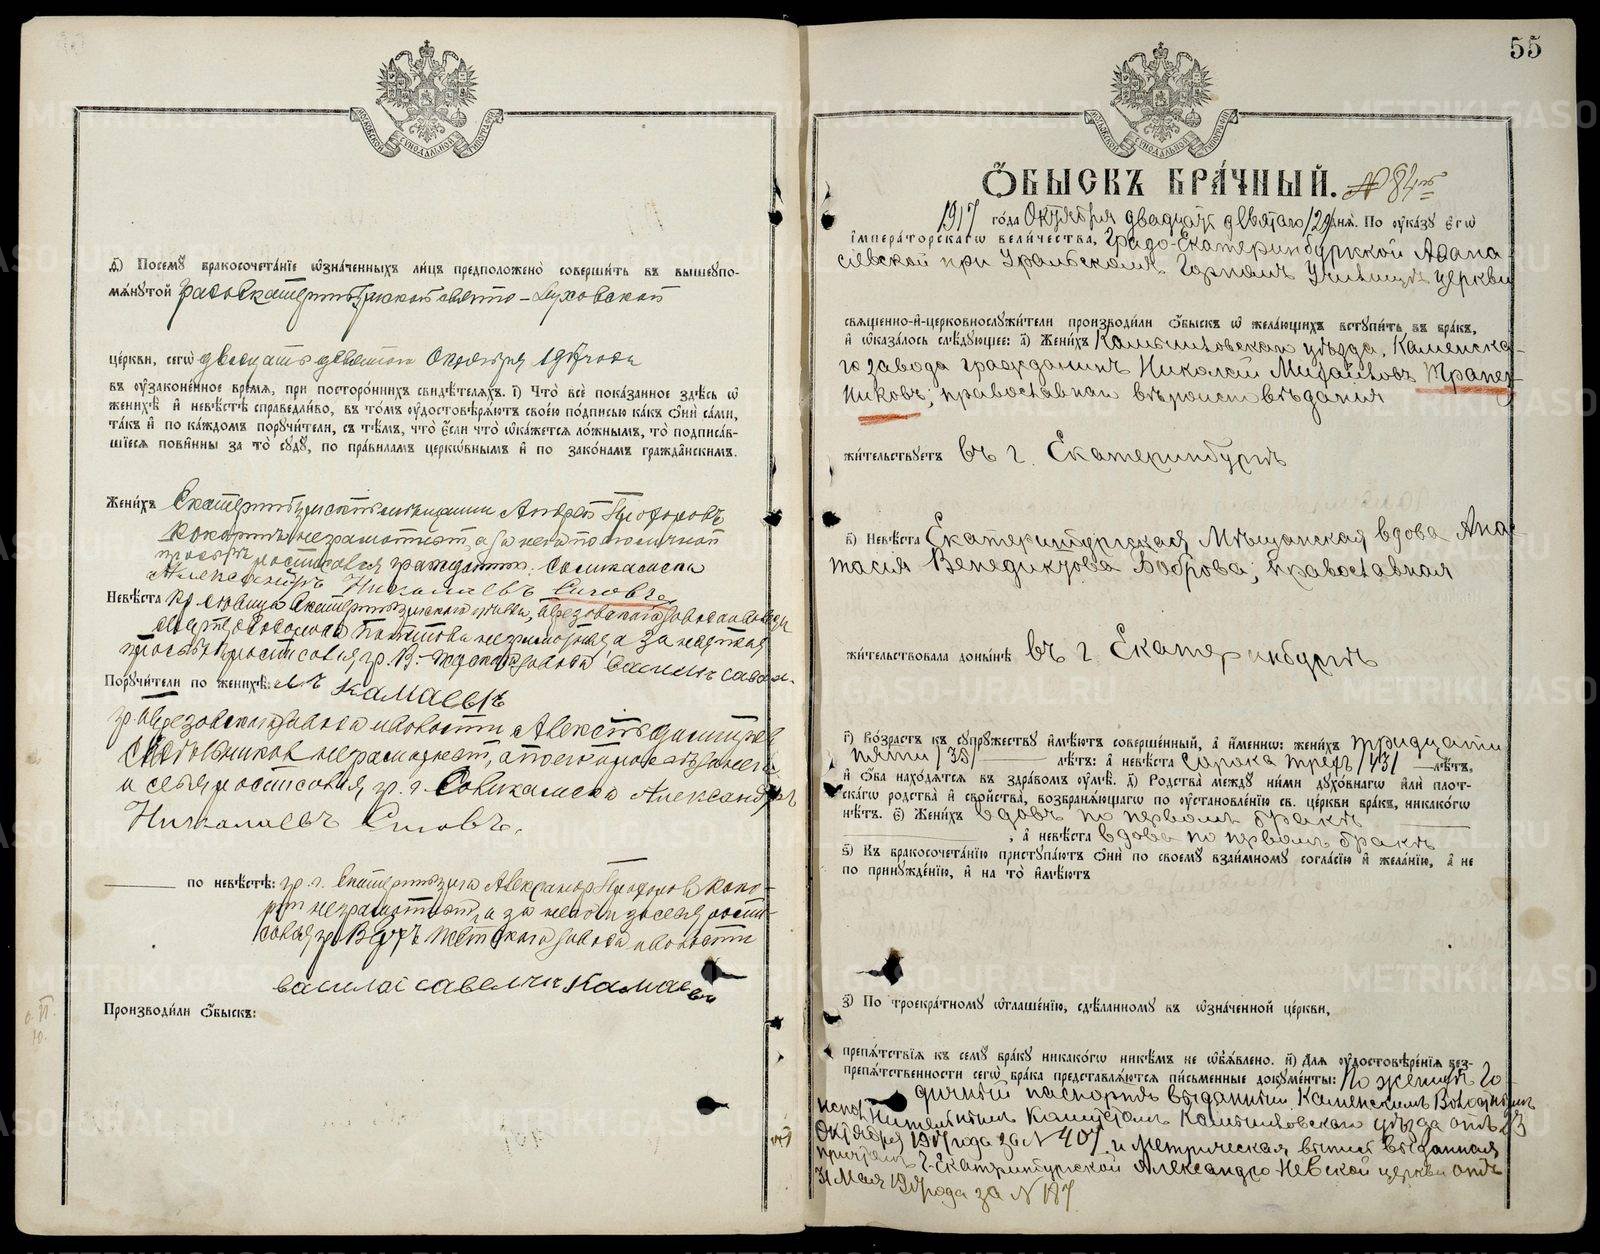 д҃) Посемꙋ бракосочетанїе ѡзначенныхъ лицъ предположено совершить въ вышеупо-
мянутой Градо-Екатеринбургской Свято-Духовской
церкви, сегѡ двадцать девятого Октября 1917 года
въ оузаконенное время, при постороннихъ свидѣтеляхъ. і҃) Что все показанное здѣсь ѡ
женихѣ и невѣстѣ справедливо, въ томъ оудостовѣряютъ своею подписью какъ ѻни сами,
такъ и по каждомъ поручители, съ тѣмъ, что если что ѡкажется ложнымъ, то подписав-
шїеся повинны за то судꙋ, по правиламъ церкѡвнымъ и по законамъ гражданскимъ.
Женихъ Екатеринбургскій мещанин Андрей Прохоровъ
Кокоринъ неграмотный, а за него по его личной
просьбѣ росписался гражданин г. Соликамска
Александръ Николаевъ Сиговъ
Невѣста
просьбѣ росписался гр. В. заводской Василий Савел-
Поручители по женихѣ: евъ Камаевъ
гр. Березовского завода и волости Алексѣй Дмитриев
неграмотный, а по его просьбѣ за него
и себя росписался гр. г. Соликамска Александръ
Николаевъ Сиговъ.
по невѣстѣ: гр. г. Екатеринбурга Александр Прохоров Коко-
рин неграмотный, а за него и за себя роспи-
сался гр. завода и волости
Василий Савельич Камаевъ
Производили ѻбыскъ:
55
Ѻбыскъ брачный. № 84й
1917 года Октября двадцать девятаго /29/ дня. По оуказу егѡ
императорскагѡ величества, Градо-Екатеринбургской Афана-
сіевской при Уральскомъ Горномъ Училищѣ церкви
священно-и-церковнослужители производили ѻбыскъ ѡ желающихъ вступить въ бракъ,
и ѡказалось слѣдующее: а҃) Женихъ Камышловскаго уѣзда, Каменска-
го завода гражданинъ Николай Михайловъ Трапез-
никовъ, православнаго вѣроисповѣданія
жительствуетъ въ г. Екатеринбургѣ
в҃) Невѣста Екатеринбургская Мѣщанская вдова Ана-
тасія Венедиктова Боброва, православная
жительствовала донынѣ въ г. Екатеринбургѣ
г҃) Возрастъ къ супружеству имѣютъ совершенный, а именнѡ: женихъ тридцати
пяти /35/ лѣтъ: а невѣста сорока трехъ /43/ лѣтъ,
и ѻба находятся въ здравомъ оумѣ. д҃) Родства между ними духовнагѡ или плот-
скагѡ родства и свойства, возбраняющагѡ по оустановленїю св. церкви бракъ, никакогѡ
нѣтъ. є҃) Женихъ вдовъ по первомъ бракѣ
, а невѣста вдова по первомъ бракѣ
ѕ҃) Къ бракосочетанїю приступаютъ ѻни по своему взаимному согласїю и желанїю, а не
по принужденїю, и на то имѣютъ
з҃) По троекратному ѡглашенїю, сдѣланному въ ѡзначенной церкви,
препятствїя къ сему браку никакогѡ никѣмъ не ѡбъявлено. и҃) Для оудостовѣренїя без-
препятственности сегѡ брака представляются письменные документы: По женихѣ Го-
дичный паспортъ выданный Каменскимъ Волостнымъ
Исполнительнымъ Комитетомъ Камышловскаго уѣзда отъ 23
Октября 1917 года за № 407 и метрическая выпись выданная
причтомъ г. Екатеринбургской Александро-Невской церкви отъ
31 Мая 1917 года за № 187
METRIKI.GASO-URAL.RU